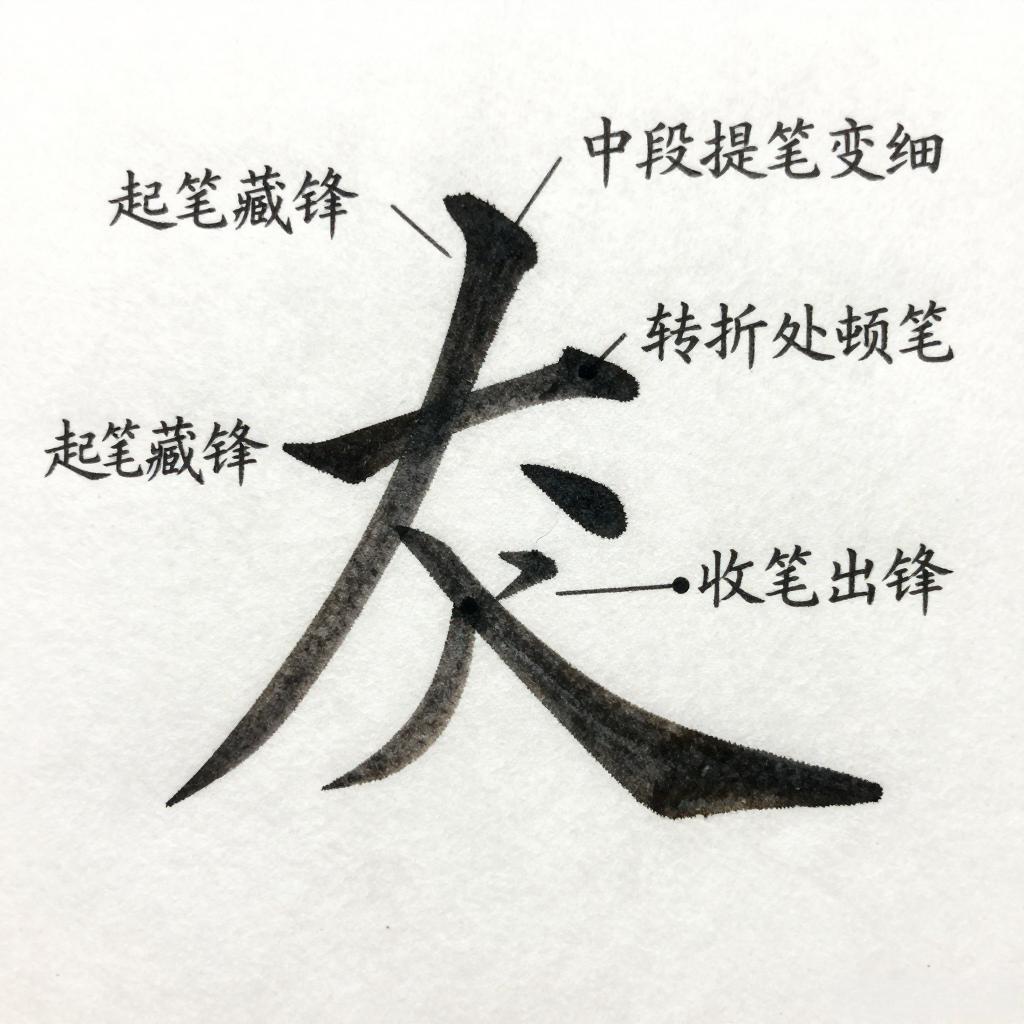 中段提笔变细
起笔藏锋
转折处顿笔
起笔藏锋
收笔出锋